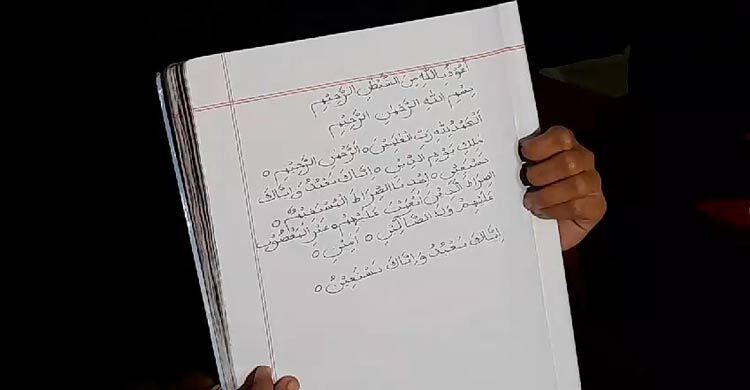 أَعُوْذُ بِاللّٰهِ مِنَ الشَّيْطٰنِ الرَّجِيْمِ
بِسْمِ اللّٰهِ الرَّحْمٰنِ الرَّحِيْمِ
اَلْحَمْدُ لِلّٰهِ رَبِّ الْعٰلَمِيْنَ ○ الرَّحْمٰنِ الرَّحِيْمِ ○
مٰلِكِ يَوْمِ الدِّيْنِ ○ اِيَّاكَ نَعْبُدُ وَاِيَّاكَ
نَسْتَعِيْنُ ○ اِهْدِنَا الصِّرَاطَ الْمُسْتَقِيْمَ ○
صِرَاطَ الَّذِيْنَ اَنْعَمْتَ عَلَيْهِمْ ○ غَيْرِ الْمَغْضُوْبِ
عَلَيْهِمْ وَلَا الضَّآلِّيْنَ ○ اٰمِيْن ○
اِيَّاكَ نَعْبُدُ وَاِيَّاكَ نَسْتَعِيْنُ ○